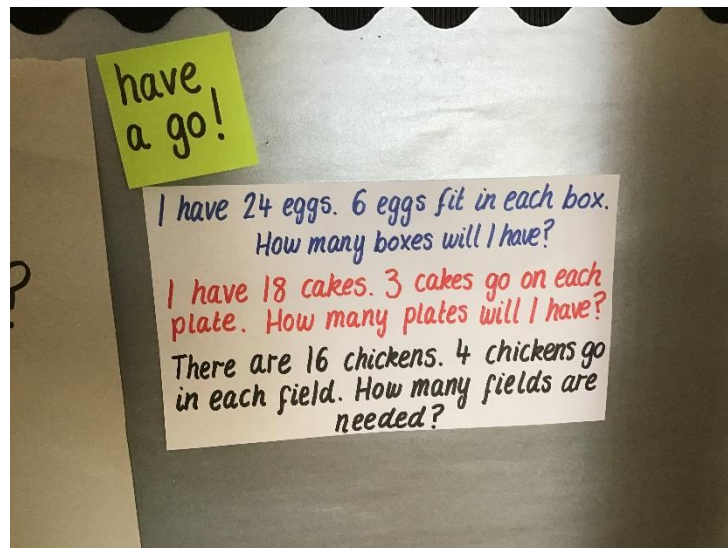 have
a go!
I have 24 eggs. 6 eggs fit in each box.
How many boxes will I have?
I have 18 cakes. 3 cakes go on each
plate. How many plates will I have?
There are 16 chickens. 4 chickens go
in each field. How many fields are
needed?
?